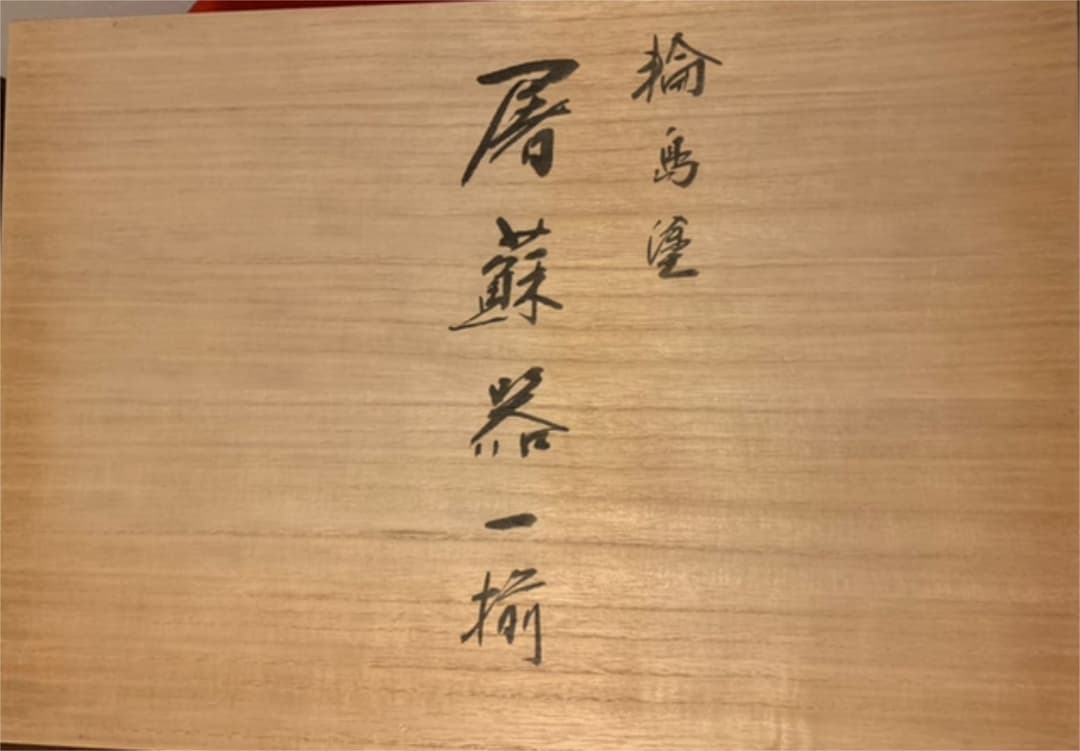 輪島塗
屠蘇器一揃